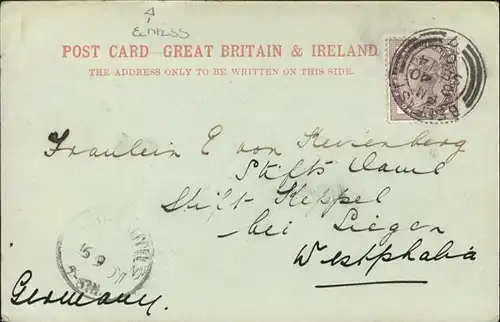 POST CARD—GREAT BRITAIN & IRELAND
THE ADDRESS ONLY TO BE WRITTEN ON THIS SIDE.
BELFAST
Fraulein E von
Stifts Dame
Stift Keppel
bei Siegen
Westphalia
Germany.